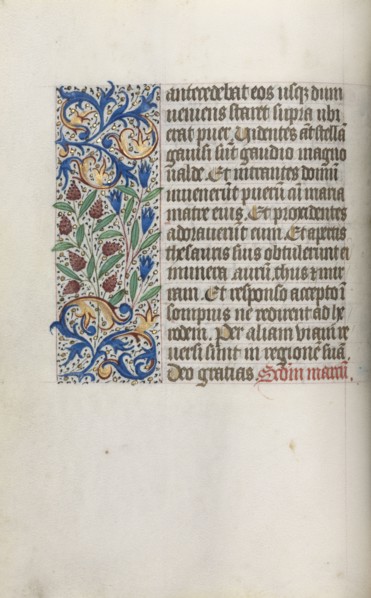 antecedebat eos usq; dum
veniens staret supra ubi
erat puer. Videntes aūt stellā
gavisi sūt gaudio magno
valde. Et intrantes domū
invenerūt puerū cū maria
matre eius. Et procidentes
adoraverūt eum. Et apertis
thesauris suis obtulerunt ei
munera, aurū, thus & mir
ram. Et responso accepto ī
sompnis ne redirent ad he
rodem. Per aliam viam re
versi sunt in regionē suā
Deo gratias. Scdm marcū.